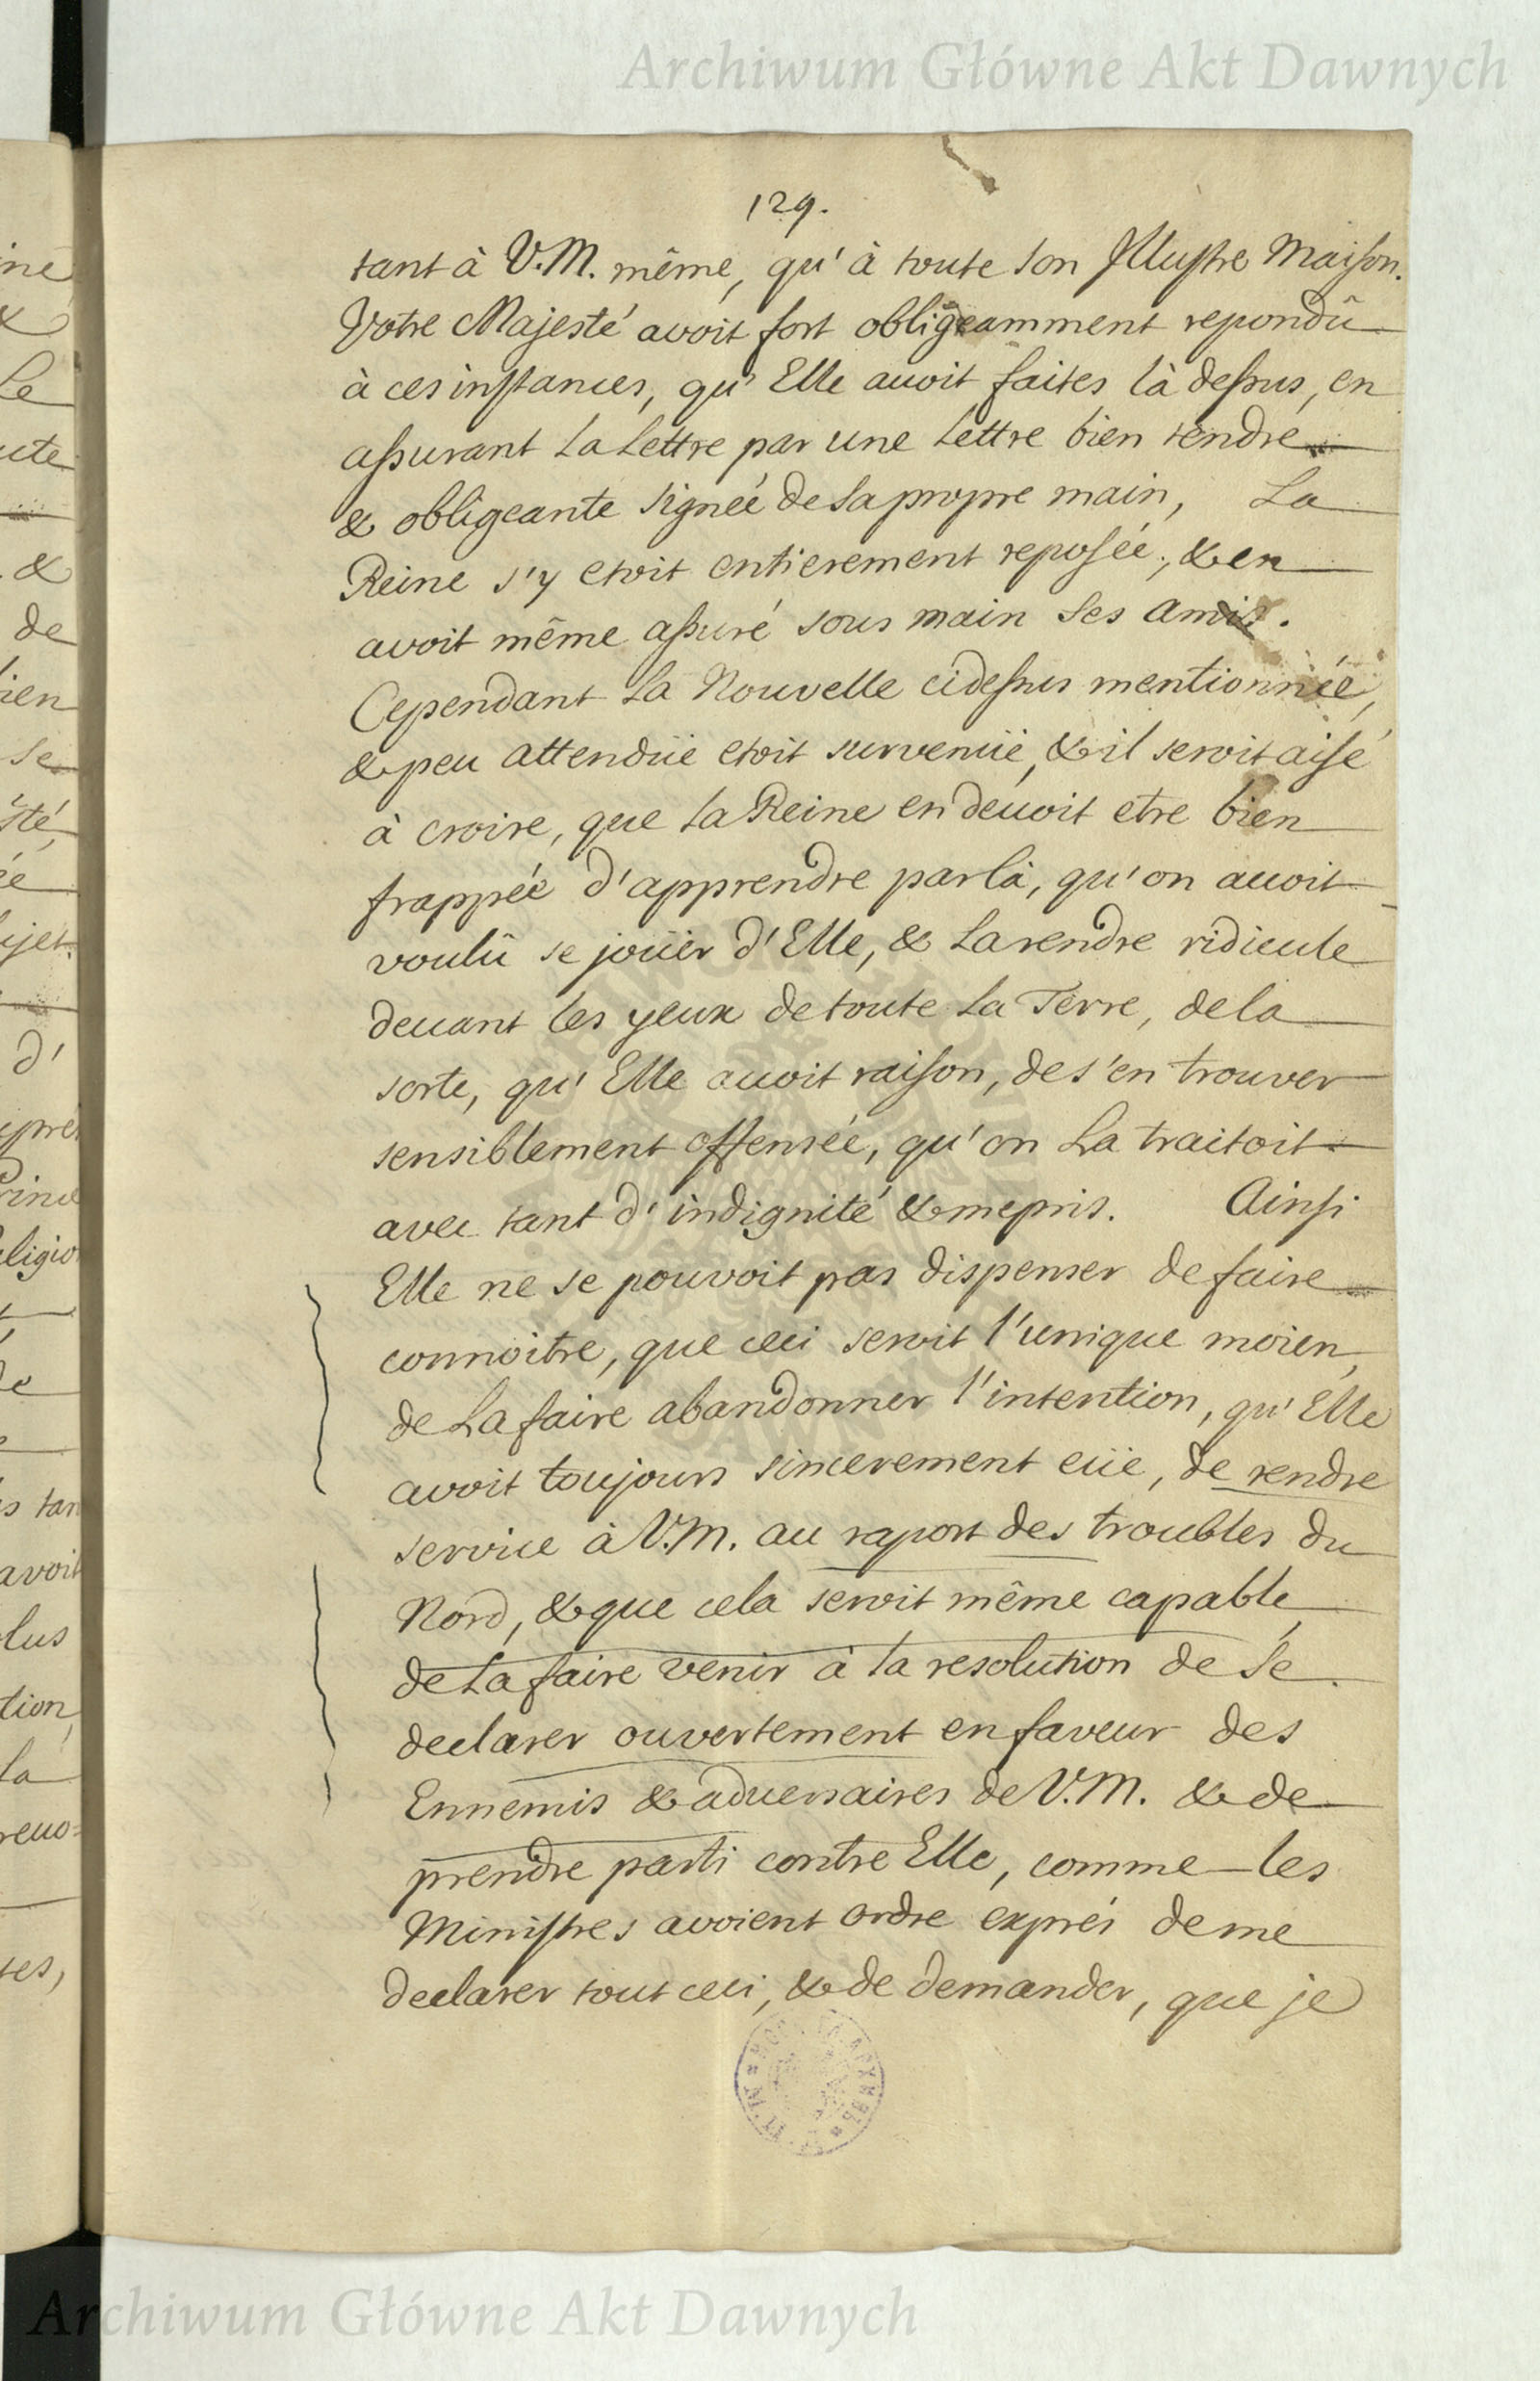 Archiwum Główne Akt Dawnych
129.
tant à V.M. même, qu'à toute son Illustre Maison.
Votre Majesté avoit fort obligeamment repondû
à ces instances, qu'Elle auoit faites là dessus, en
assurant La Lettre par une Lettre bien tendre
& obligeante signée de sa propre main, La
Reine s'y etoit entierement reposée; & en
avoit même assuré sous main Ses amis.
Cependant La Nouvelle cidessus mentionnée,
& peu attendüe etoit survenüe, & il seroit aisé
à croire, que La Reine en deuoit etre bien
frappée d'apprendre par là, qu'on auoit
voulû se joüer d'Elle, & La rendre ridicule
deuant les yeux de toute La Terre, de la
sorte, qu'Elle auoit raison, de s'en trouver
sensiblement offensée, qu'on La traitoit
avec tant d'indignité & mepris. Ainsi
Elle ne se pouvoit pas dispenser de faire
connoitre, que ceci seroit l'unique moien,
de La faire abandonner l'intention, qu'Elle
avoit toujours sincerement eüe, de rendre
service à V.M. au raport des troubles du
Nord, & que cela seroit même capable
de La faire venir à la resolution de se
declarer ouvertement en faveur des
Ennemis & aduersaires de V.M. & de
prendre parti contre Elle, comme les
Ministres avoient ordre exprés de me
declarer tout ceci, & de demander, que je
Archiwum Główne Akt Dawnych